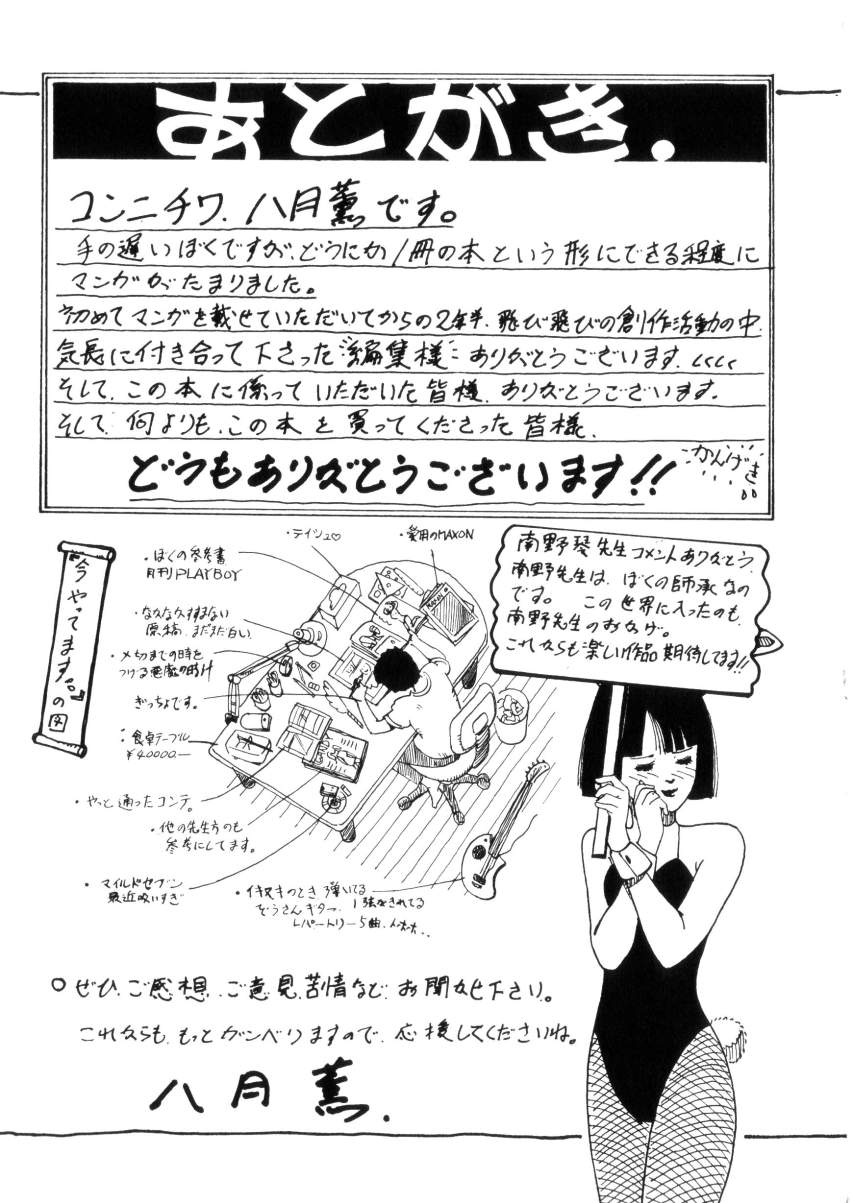 あとがき.
コンニチワ、八月薫です。
手の遅いぼくですが、どうにか1冊の本という形にできる程度に
マンガがたまりました。
初めてマンガを載せていただいてからの2年半、飛び飛びの創作活動の中、
気長に付き合って下さった編集様ありがとうございます。
そして、この本に係っていただいた皆様、ありがとうございます。
そして、何よりも、この本を買ってくださった皆様、
どうもありがとうございます!!
かんげき
『今やってます。』の図
・ぼくの参考書
月刊PLAYBOY
・テイシュ♡
・愛用のMAXON
・なかなかすすまない
原稿、まだまだ白い。
・〆切までの時を
つげる悪魔の時計
ぎっちょです。
・食卓テーブル
¥40000―
・やっと通ったコンテ。
・他の先生方のも
参考にしてます。
・マイルドセブン
最近吸いすぎ
・イキヌキのとき弾いてる
ぞうさんギター、1弦がきれてる
レパートリー5曲、
南野琴先生コメントありがとう、
南野先生は、ぼくの師承なの
です。この世界に入ったのも、
南野先生のおかげ。
これからも楽しい作品期待してます!!
○ぜひ、ご感想、ご意見、苦情など、お聞かせ下さい。
これからも、もっとガンバりますので、応援してくださいね。
八月薫.